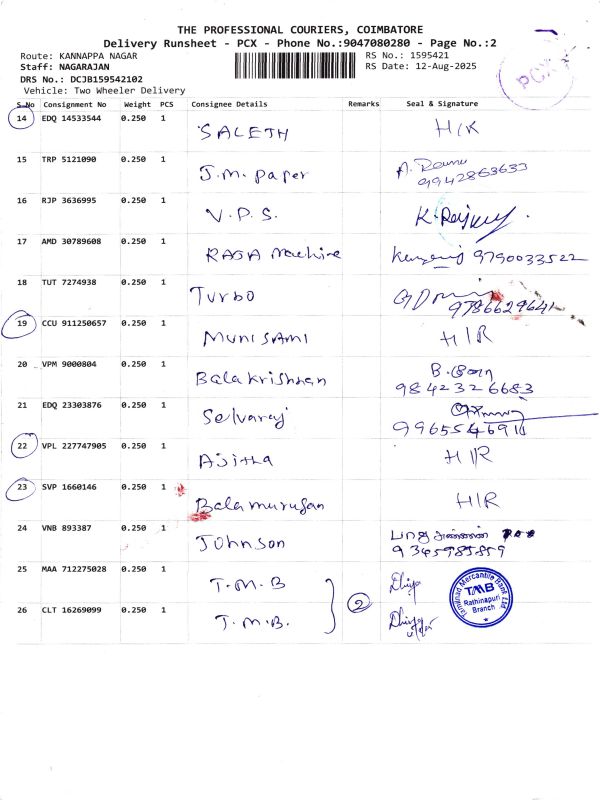 THE PROFESSIONAL COURIERS, COIMBATORE
Delivery Runsheet - PCX - Phone No.:9047080280 - Page No.:2
Route: KANNAPPA NAGAR
RS No.: 1595421
Staff: NAGARAJAN
RS Date: 12-Aug-2025
DRS No.: DCJB159542102
Vehicle: Two Wheeler Delivery
PCX
S.No Consignment No Weight PCS Consignee Details Remarks Seal & Signature
14 EDQ 14533544 0.250 1 SALETH H/R
15 TRP 5121090 0.250 1 J.M. paper
9942863633
16 RJP 3636995 0.250 1 V.P.S.
17 AMD 30789608 0.250 1 RAJA machine 9790033522
18 TUT 7274938 0.250 1 Turbo
9786629641
19 CCU 911250657 0.250 1 MUNISAMI H/R
20 VPM 9000804 0.250 1 Balakrishnan
9842326683
21 EDQ 23303876 0.250 1 Selvaraj
9965546911
22 VPL 227747905 0.250 1 Ajitha H/R
23 SVP 1660146 0.250 1 Balamurugan H/R
24 VNB 893387 0.250 1 Johnson
9345985859
25 MAA 712275028 0.250 1 T.M.B Dhiya
26 CLT 16269099 0.250 1 T.M.B. 2 Dhiya
Tamilnad Mercantile Bank Ltd
TMB
Rathinapuri
Branch